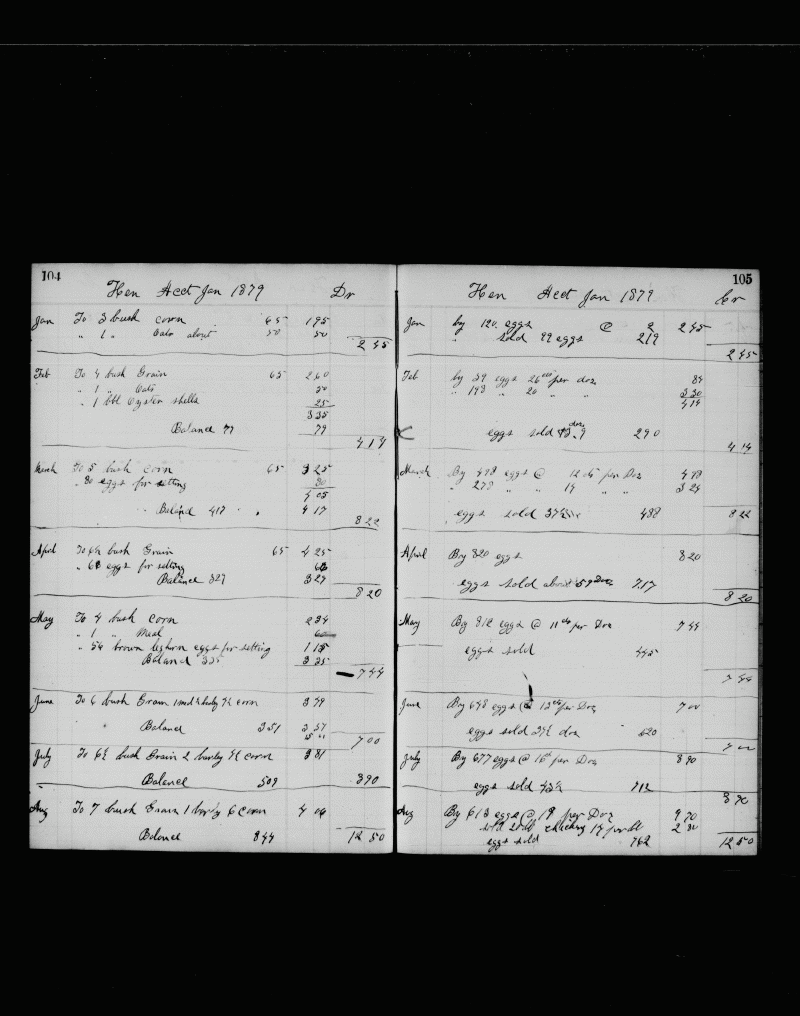 104
Hen Acct Jan 1879 Dr
Jan To 3 bush corn 65 195
" 1 " Oats about 50 50
2 45
Feb To 4 bush Grain 65 260
" 1 " Oats 50
" 1 bbl Oyster shells 25
335
Balance 79 79
414
March To 5 bush corn 65 325
" 80 eggs for setting 80
405
" Balance 417 " 417
822
April To 6½ bush Grain 65 425
" 68 eggs for setting
Balance 327 327
820
May To 4 bush corn 234
" 1 " Meal
" 54 brown leghorn eggs for setting
Balance 325 325
744
June To 6 bush Grain corn 349
Balance 351 351
700
July To 6½ bush Grain 2 barley 4½ corn 381
Balance 509 890
Aug To 7 bush Grain 1 barley 6 corn 4 06
Balance 844 12 50
105
Hen Acct Jan 1879 Cr
Jan by 120 eggs @ 2 245
" sold 99 eggs 219
245
Feb by 39 eggs 26 cts per doz 84
" 198 " 20 " " 330
414
eggs sold doz 290
414
March By 498 eggs @ 12 cts per Doz 498
" 278 " " 14 " " 324
eggs sold 37½ 488 822
April By 820 eggs 820
eggs sold about 59 Doz 717
820
May By 812 eggs @ 11 cts per Doz 744
eggs sold 445
744
June By 648 eggs @ 13 cts per Doz 700
eggs sold doz 520
700
July By 677 eggs @ 16 cts per Doz 890
eggs sold 43½ 712
890
Aug By 613 eggs @ 19 per Doz 9 70
sold chickens 14 per lb 2 80
eggs sold 762 12 50